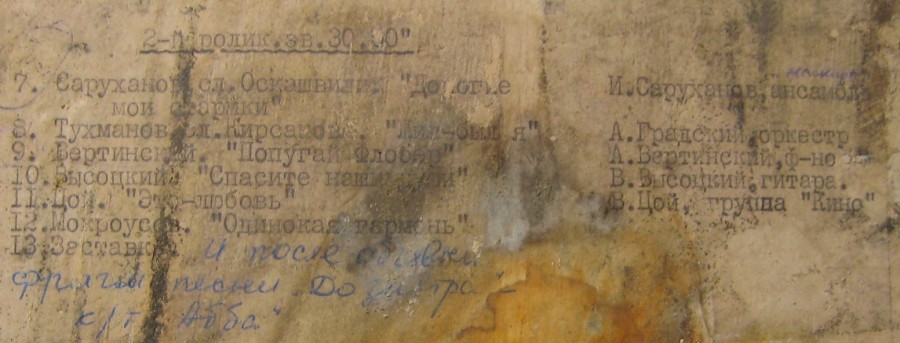 2-й ролик.зв.30.00"
7. Саруханов,сл.Оскашвилии "Дорогие И.Саруханов,ансамбль
мои старики"
8. Тухманов,сл.Кирсанова. "Жил-был я" А.Градский,оркестр
9. Вертинский. "Попугай Флобер" А.Вертинский,ф-но
10.Высоцкий. "Спасите наши души" В.Высоцкий,гитара.
11.Цой. "Это-любовь" В.Цой, группа "Кино"
12.Мокроусов. "Одинокая гармонь"
13.Заставка. И после
песни До
"Абба"